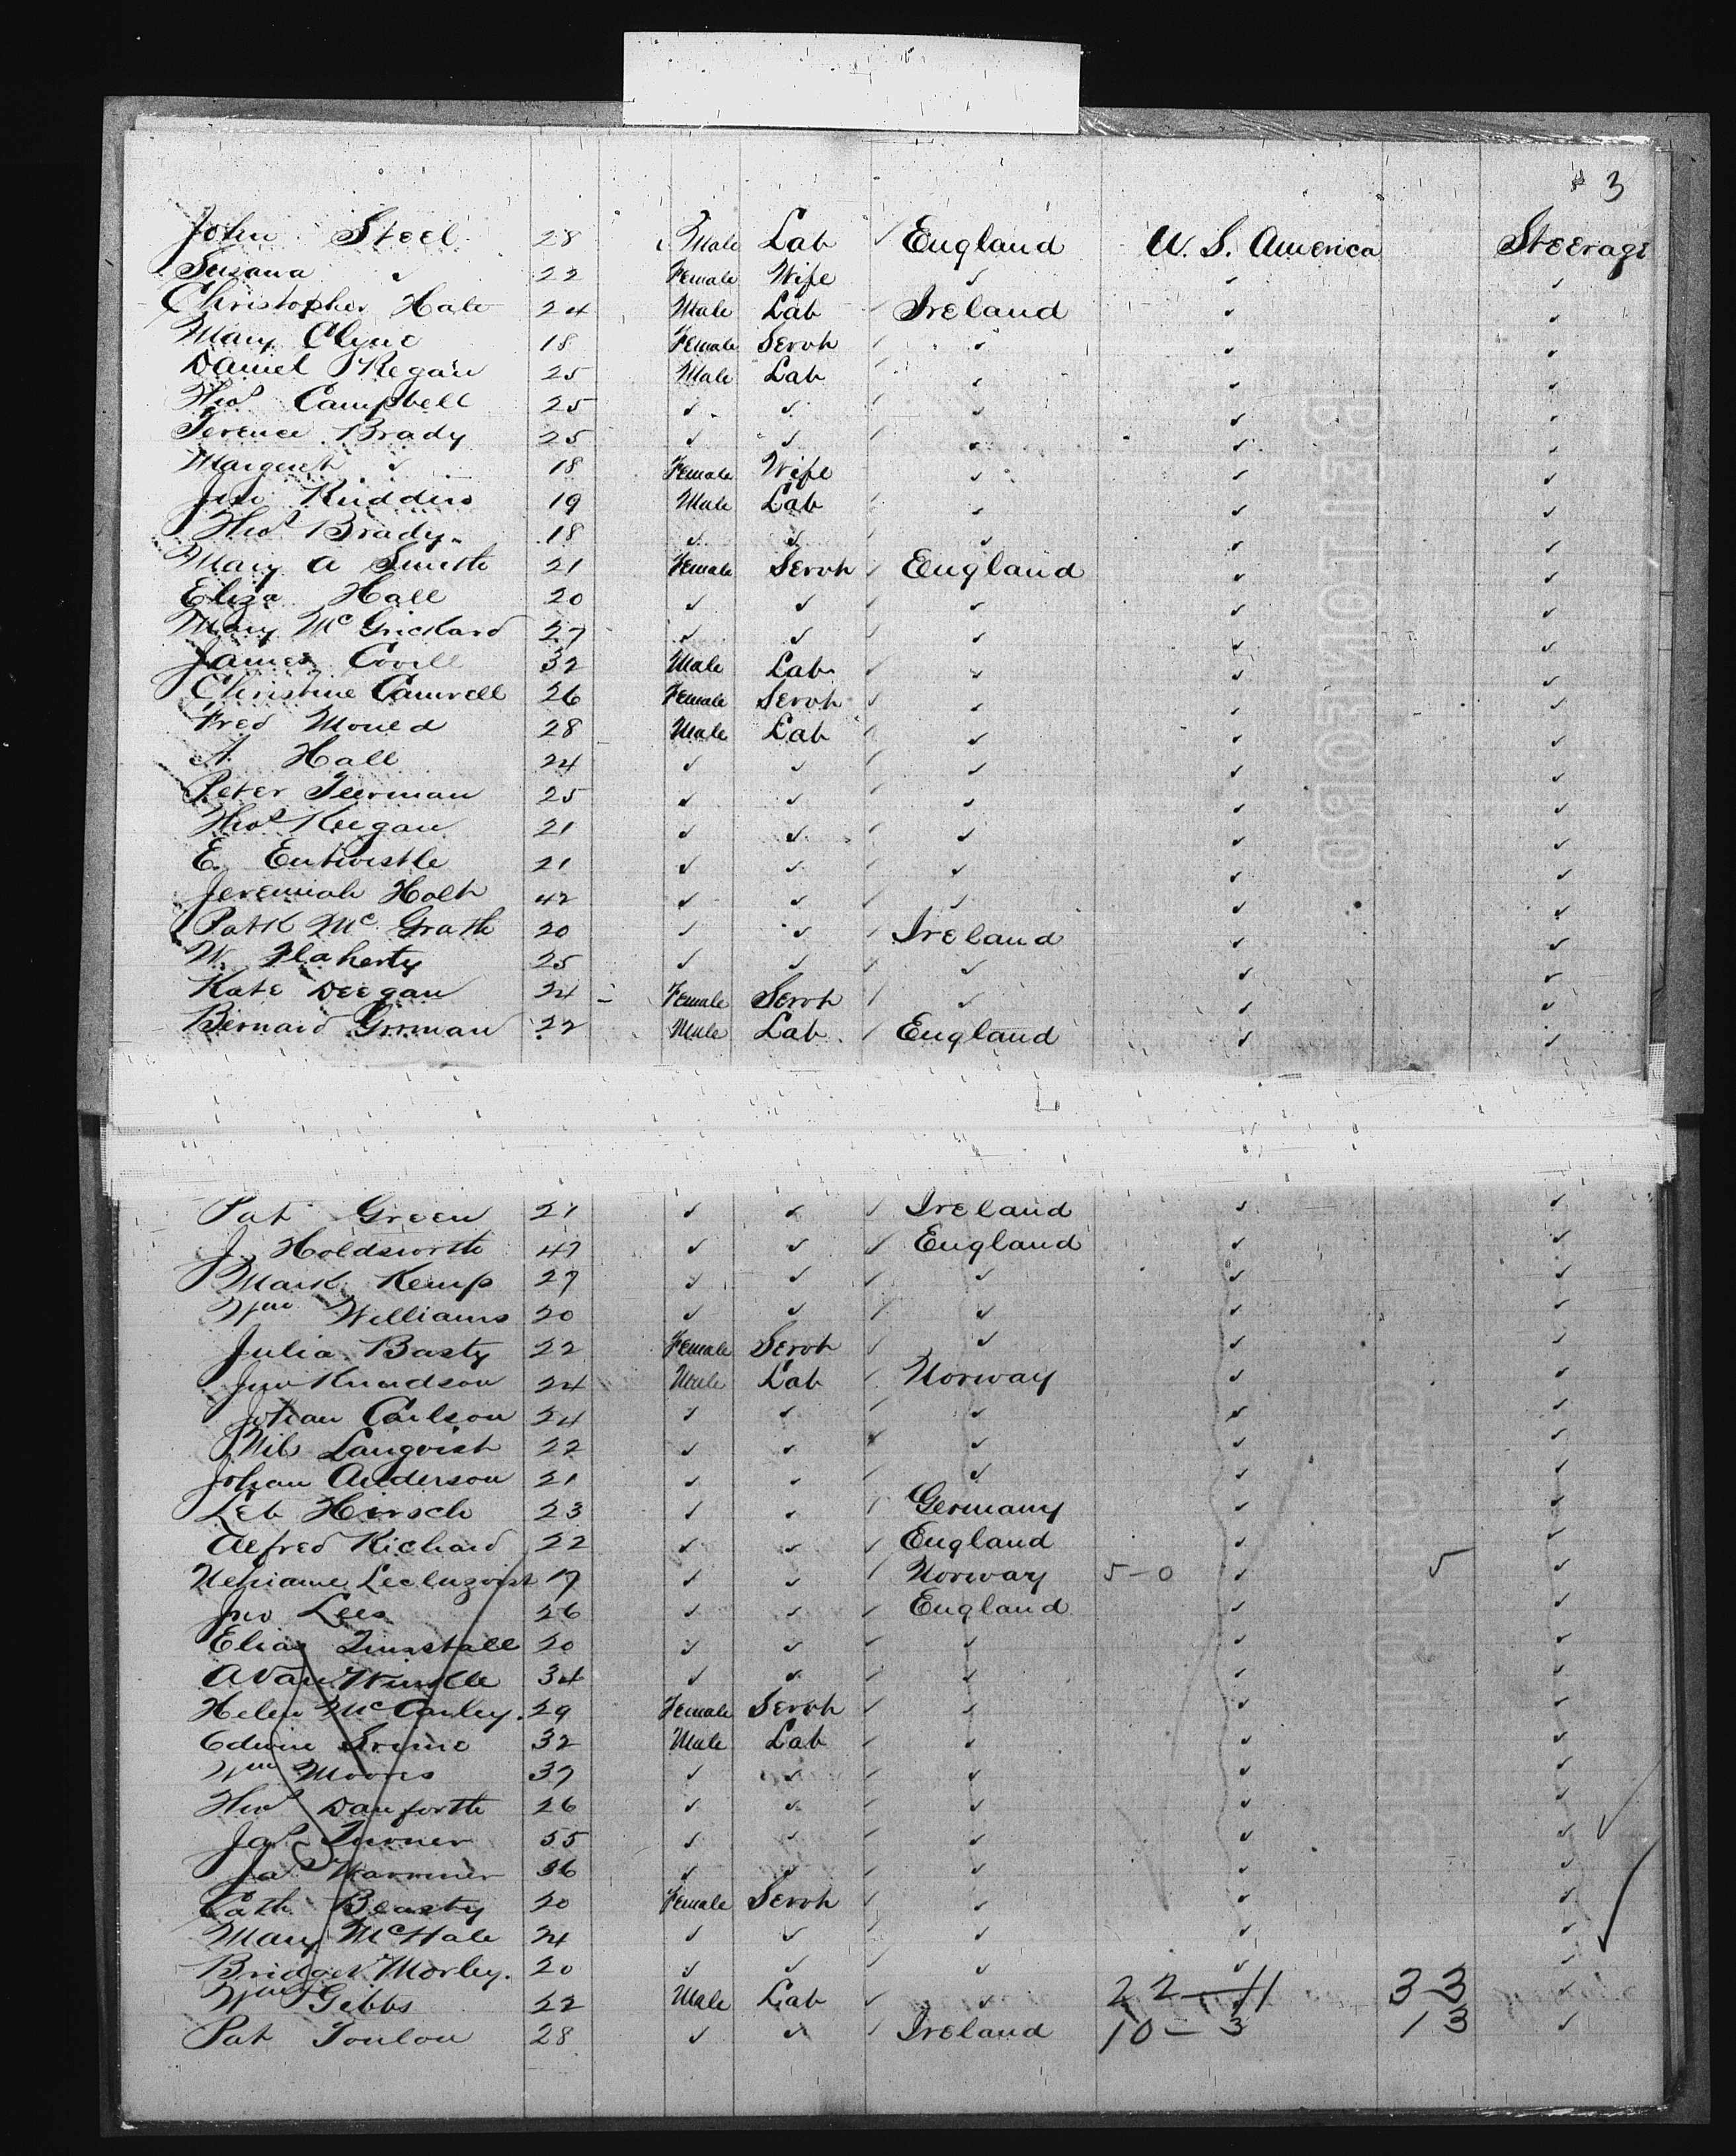 3
John Steel 28 Male Lab ✓ England U. S. America Steerage
Susana ✓ 22 Female Wife ✓ ✓ ✓
Christopher Hale 24 Male Lab ✓ Ireland ✓ ✓
Mary Clyne 18 Female Servt ✓ ✓ ✓ ✓
Daniel Regan 25 Male Lab ✓ ✓ ✓ ✓
Thos Campbell 25 ✓ ✓ ✓ ✓ ✓ ✓
Terence Brady 25 ✓ ✓ ✓ ✓ ✓ ✓
Margaret ✓ 18 Female Wife ✓ ✓ ✓
Jno 19 Male Lab ✓ ✓ ✓ ✓
Thos Brady 18 ✓ ✓ ✓ ✓ ✓ ✓
Mary A Smith 21 Female Servt ✓ England ✓ ✓
Eliza Hall 20 ✓ ✓ ✓ ✓ ✓ ✓
Mary McGrickard 27 ✓ ✓ ✓ ✓ ✓ ✓
James Covill 32 Male Lab ✓ ✓ ✓ ✓
Christine 26 Female Servt ✓ ✓ ✓ ✓
Fred Mould 28 Male Lab ✓ ✓ ✓ ✓
A. Hall 24 ✓ ✓ ✓ ✓ ✓ ✓
Peter 25 ✓ ✓ ✓ ✓ ✓ ✓
Thos Keegan 21 ✓ ✓ ✓ ✓ ✓ ✓
E. Entwistle 21 ✓ ✓ ✓ ✓ ✓ ✓
Jeremiah Holt 42 ✓ ✓ ✓ ✓ ✓ ✓
Patk McGrath 20 ✓ ✓ ✓ Ireland ✓ ✓
W. Flaherty 25 ✓ ✓ ✓ ✓ ✓ ✓
Kate Deegan 24 Female Servt ✓ ✓ ✓ ✓
Bernard Gorman 22 Male Lab ✓ England ✓ ✓
Pat Green 21 ✓ ✓ ✓ Ireland ✓ ✓
J. Holdsworth 47 ✓ ✓ ✓ England ✓ ✓
Mark Kemp 27 ✓ ✓ ✓ ✓ ✓ ✓
Wm Williams 20 ✓ ✓ ✓ ✓ ✓ ✓
Julia Basty 22 Female Servt ✓ ✓ ✓ ✓
Jno Knudson 24 Male Lab ✓ Norway ✓ ✓
Johan Carlson 24 ✓ ✓ ✓ ✓ ✓ ✓
Nils Lanqvist 22 ✓ ✓ ✓ ✓ ✓ ✓
Johan Anderson 21 ✓ ✓ ✓ ✓ ✓ ✓
Leb Hirsch 23 ✓ ✓ ✓ Germany ✓ ✓
Alfred Richard 22 ✓ ✓ ✓ England ✓ ✓
17 ✓ ✓ ✓ Norway 5-0 ✓ 5 ✓
Jno Lees 26 ✓ ✓ ✓ England ✓ ✓
Elias Tunstall 20 ✓ ✓ ✓ ✓ ✓ ✓
A Van Winkle 34 ✓ ✓ ✓ ✓ ✓ ✓
Helen McCauley 29 Female Servt ✓ ✓ ✓ ✓
Edwin 32 Male Lab ✓ ✓ ✓ ✓
Wm Moores 37 ✓ ✓ ✓ ✓ ✓ ✓
Thos Danforth 26 ✓ ✓ ✓ ✓ ✓ ✓
Jas Turner 55 ✓ ✓ ✓ ✓ ✓ ✓
Jas 36 ✓ ✓ ✓ ✓ ✓ ✓
Cath Beasty 20 Female Servt ✓ ✓ ✓ ✓
Mary McHale 24 ✓ ✓ ✓ ✓ ✓ ✓
Bridget Morley 20 ✓ ✓ ✓ ✓ ✓ ✓
Wm Gibbs 22 Male Lab ✓ ✓ 22-11 33 ✓
Pat 28 ✓ ✓ ✓ Ireland 10-3 13 ✓